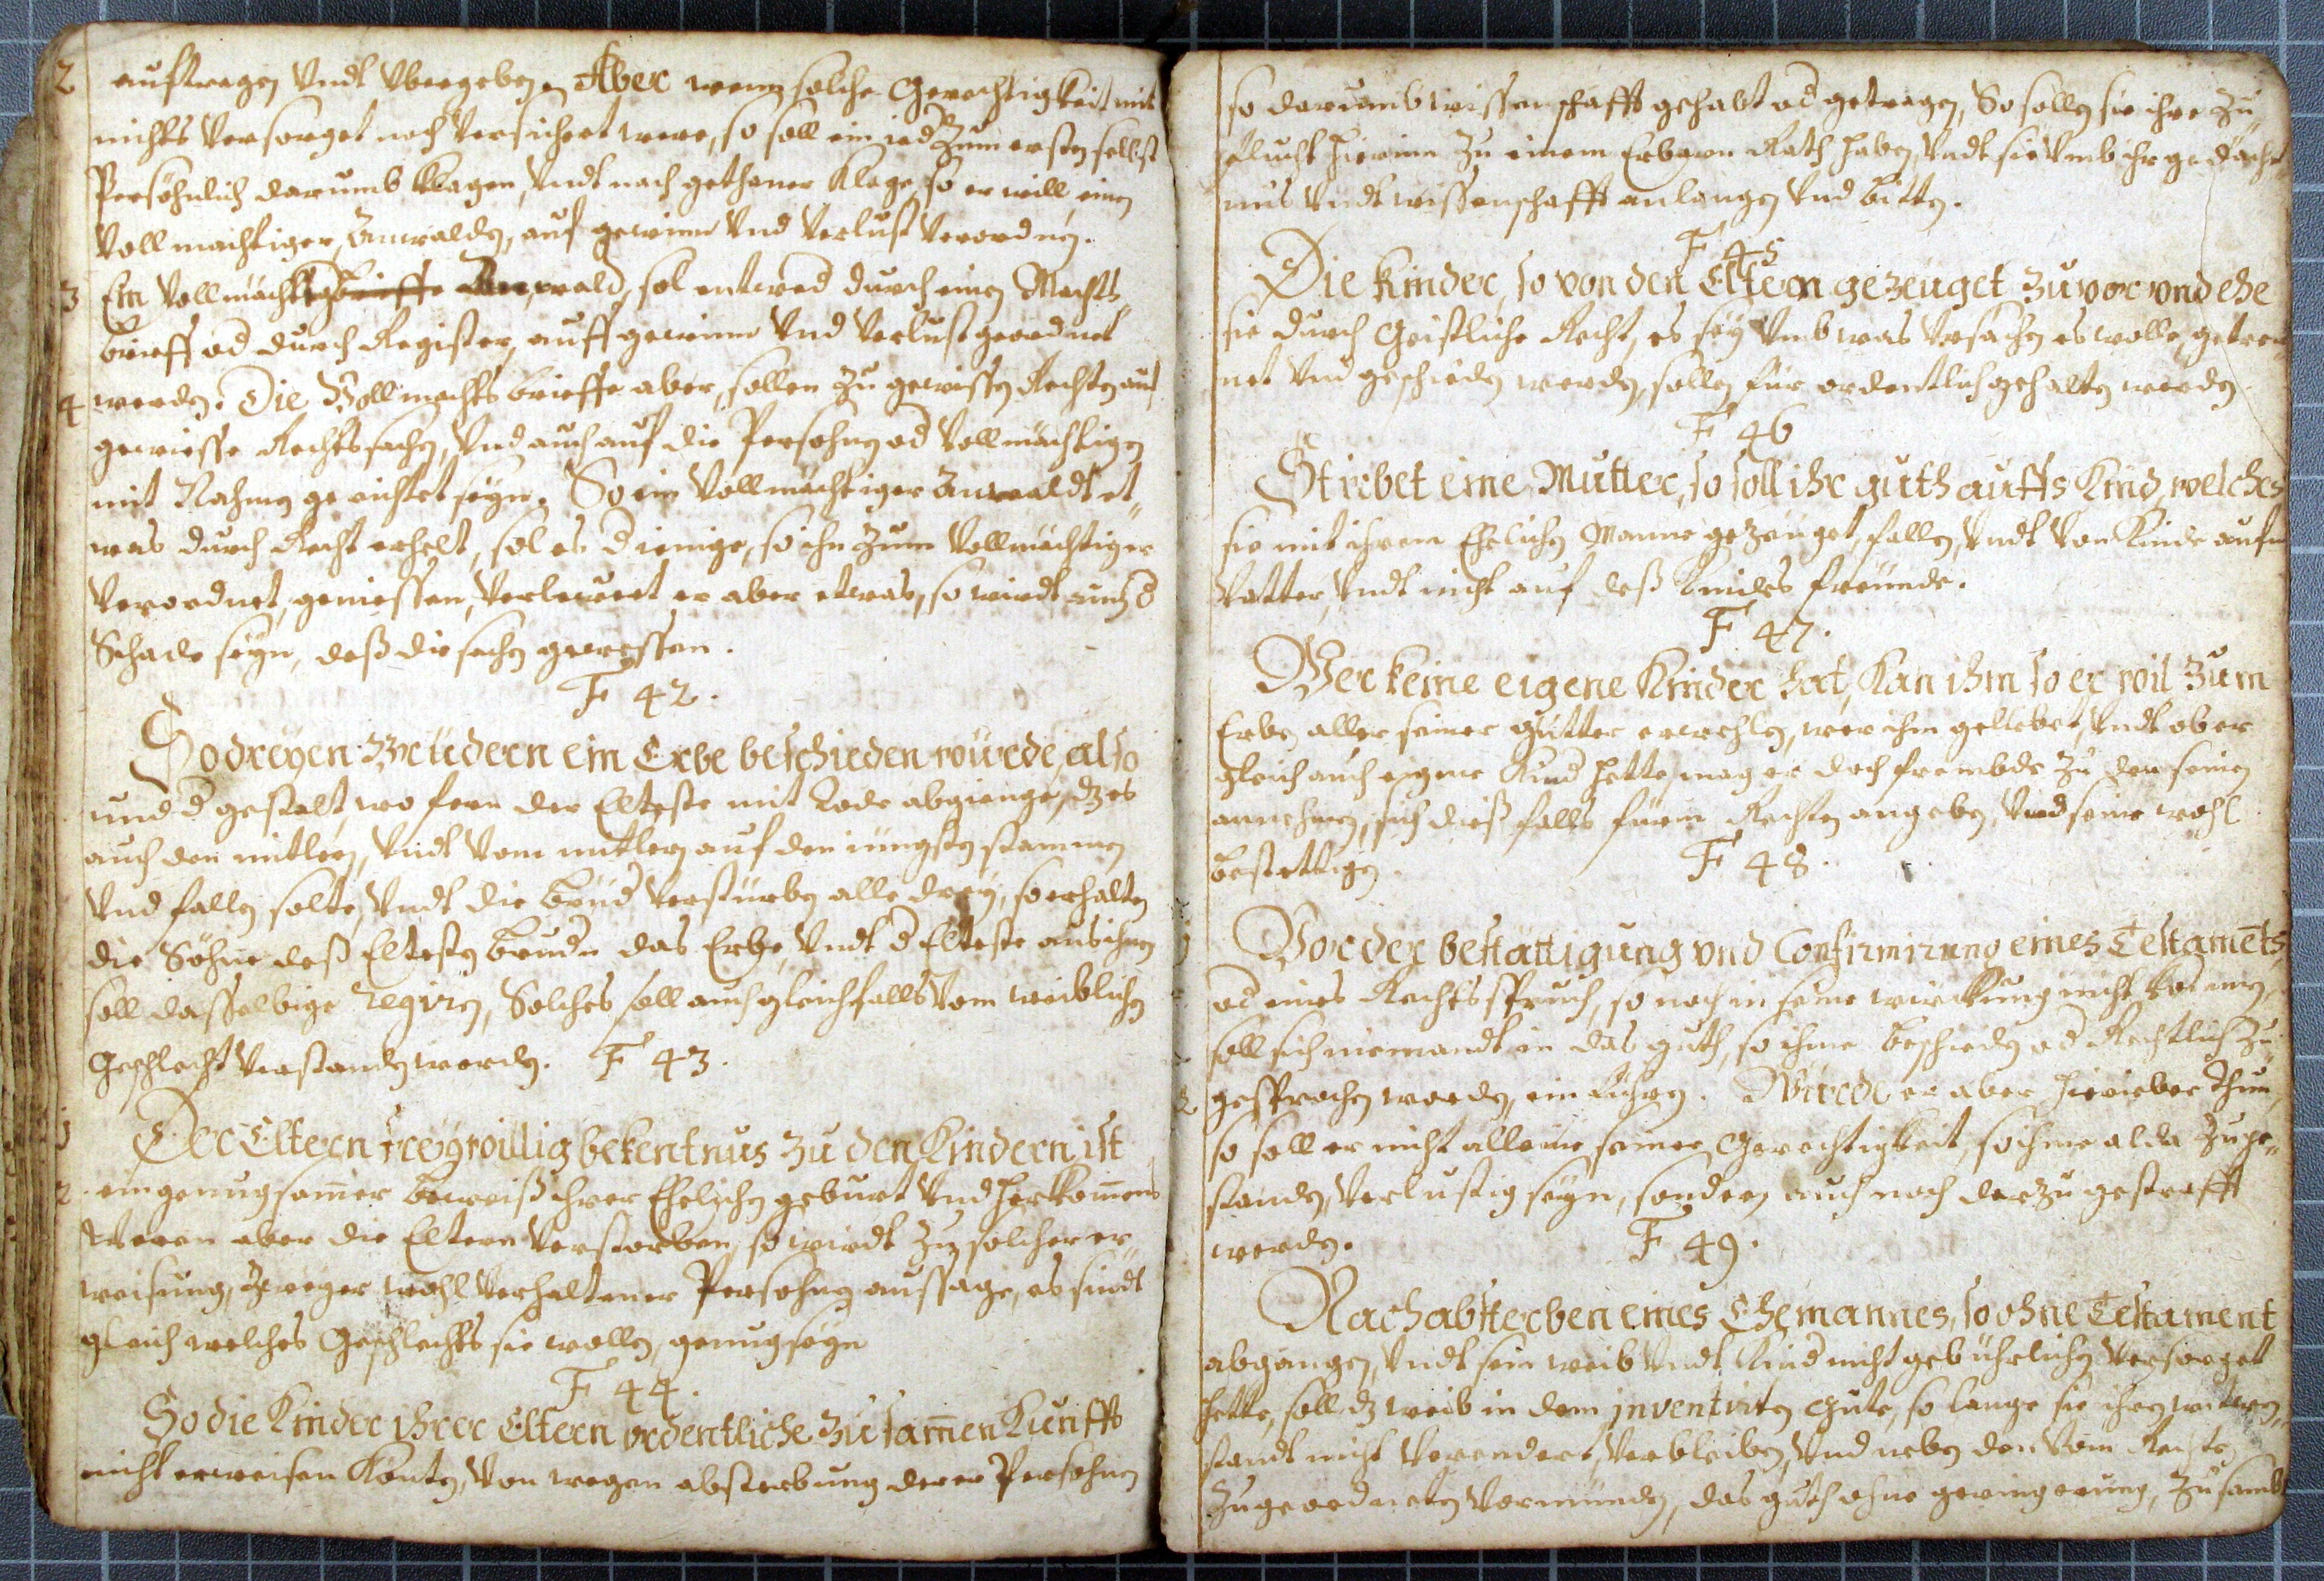 2 auftragen Vndt Vbergeben, Aber wenn solche Gerechtigkeit mit
nichts Versorget noch Versichert were, so soll ein ied Zum ersten selbst
Persöhnlich darumb klagen, Vndt nach gethaner Klage, so er will, einen
Vollmachtiger, Anwalden, auf gewinn Vnd Verlust Verordnen.
3 Ein Vollmächt wald, sol entwed durch einen Machts
brieff od durch Register, auff gewinn Vnd Verlust geordnet
4 werden. Die Vollmachts brieffe aber, sollen Zu gewissen Rechten auf
gewiesse Rechtssachen, Vnd auch auf die Persohnen od Vollmächtigen
mit Nahmen gerichtet seyn. So ein Vollmächtiger Anwaldt et„
was durch Recht erhelt, sol es dienige, so ihn Zum Vollmächtiger
Verordnet, geniessen, Verleuret er aber etwas, so wirdt auch d
Schade seyn, deß die sachen gewessen.
F 42.
So dreyen Brüdern ein Erbe beschieden würde, also
und d gestalt, wo fern der Elteste mit Tode abgienge, dz es
auf den mitlern, Vndt Vom mitlern auf den iüngsten stammen
Vnd fallen solte, Vndt die brüd Verstürben alle drey, so erhalten
die Söhne deß Eltesten bruders das Erbe, Vndt d Elteste aus ihnen
soll dasselbige regiren, Solches soll auch gleichfalls Vom weiblichen
Geschlecht Verstanden werden. F 43.
1 Der Eltern freywillig bekentnus zu den Kindern ist
2 ein genugsamer beweiß ihrer Ehelichen geburt Vnd herkommens
Weren aber die Eltern Verstorben, so wirdt Zu solcher er„
weisung, Zweyer wohl Verhaltener Persohnen aussage, es sindt
gleich welches Geschlechts sie wollen, genug seyn
F 44.
So die Kinder ihrer Eltern ordentliche Zusammen Kunfft
nicht erweisen Könten, Von wegen absterbung derer Persohnen
so darumb wissenschafft gehabt od getragen, So sollen sie ihre Zu„
flucht hierinn Zu einem Erbarn Rath haben, Vndt sie Vmb ihr gedächt
nus Vndt wissenschafft anlangen Vnd bitten.
F 45
Die kinder, so von den Eltern gezeuget zuvor vnd ehe
sie durch Geistliche Recht, es sey Vmb was Vrsachen es wolle, getren
net Vnd geschieden werden, sollen für ordentlich gehalten werden
F 46
Stirbet eine Mutter, so soll ihr guth auffs Kind, welches
sie mit ihrem Ehelichen Manne gezeuget, fallen, Vndt Von Kinde aufn
Vatter, Vndt nicht auf deß Kindes freunde.
F 47.
Wer keine eigene Kinder hat, Kan ihm so er wil zum
Erben aller seiner gütter erwehlen, wer ihm geliebet, Vndt ob er
gleich auch eigene Kind hette, mag er doch frembde Zu den seinen
annehmen, sich dieß falls fürm Rechten angeben, Vnd seine wahl
bestettigen. F 48.
1 Vor der bestättigung vnd Confirmirung eines Testaments,
od eines Rechtsspruch, so noch in seine wirckung nicht kommen,
soll sich niemandt in das guth, so ihme beschieden od Rechtlich Zu
2 gesprochen worden, einführen. Würde er aber hierieber thun,
so soll er nicht alleine seiner Gerechtigkeit, so ihme alda Zuge„
standen, Verlustig seyn, sondern auch noch darzu gestrafft
werden. F 49.
Nach absterben eines Ehemannes, so ohne Testament
abgangen, Vndt sein weib Vndt Kind nicht gebührlichen Versorget
hette, soll dz weib in dem inventirten gute, so lange sie ihren witwen„
standt nicht Verendert, Verbleiben, Vnd neben den Vom Rechten
Zugeordneten Vormünden, das guth ohne geringerung, Zusamb